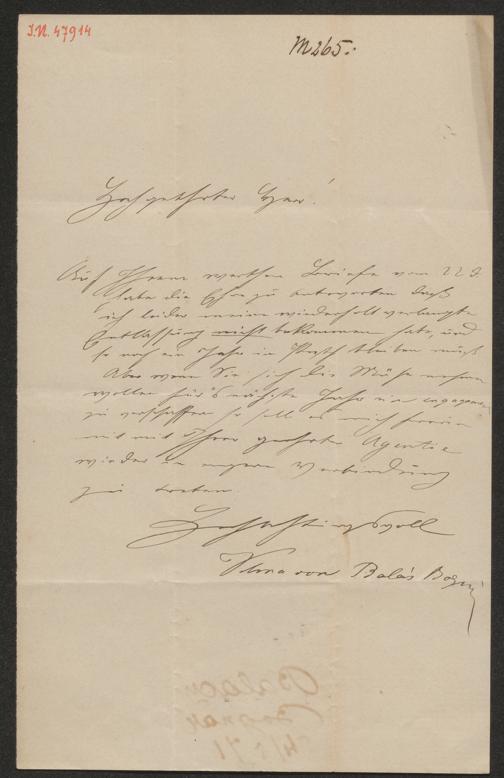 I.N. 47914
M265.
Hochgeehrter Herr!
Auf Ihrem werthen Briefe vom 22 d.
habe die Ehre zu antworten daß
ich leider meine wiederholt verlangte
Entlassung nicht bekommen habe, und
so noch ein Jahr in Pesth bleiben muß
Aber wenn Sie sich die Mühe nehmen
wollen für's nächste Jahr ein engagement
zu verschaffen so soll es mich freuen
mit mit Ihrer geehrten Agentie
wieder in engere Verbindung
zu treten.
Hochachtungsvoll
Vilma von Balás Bognár